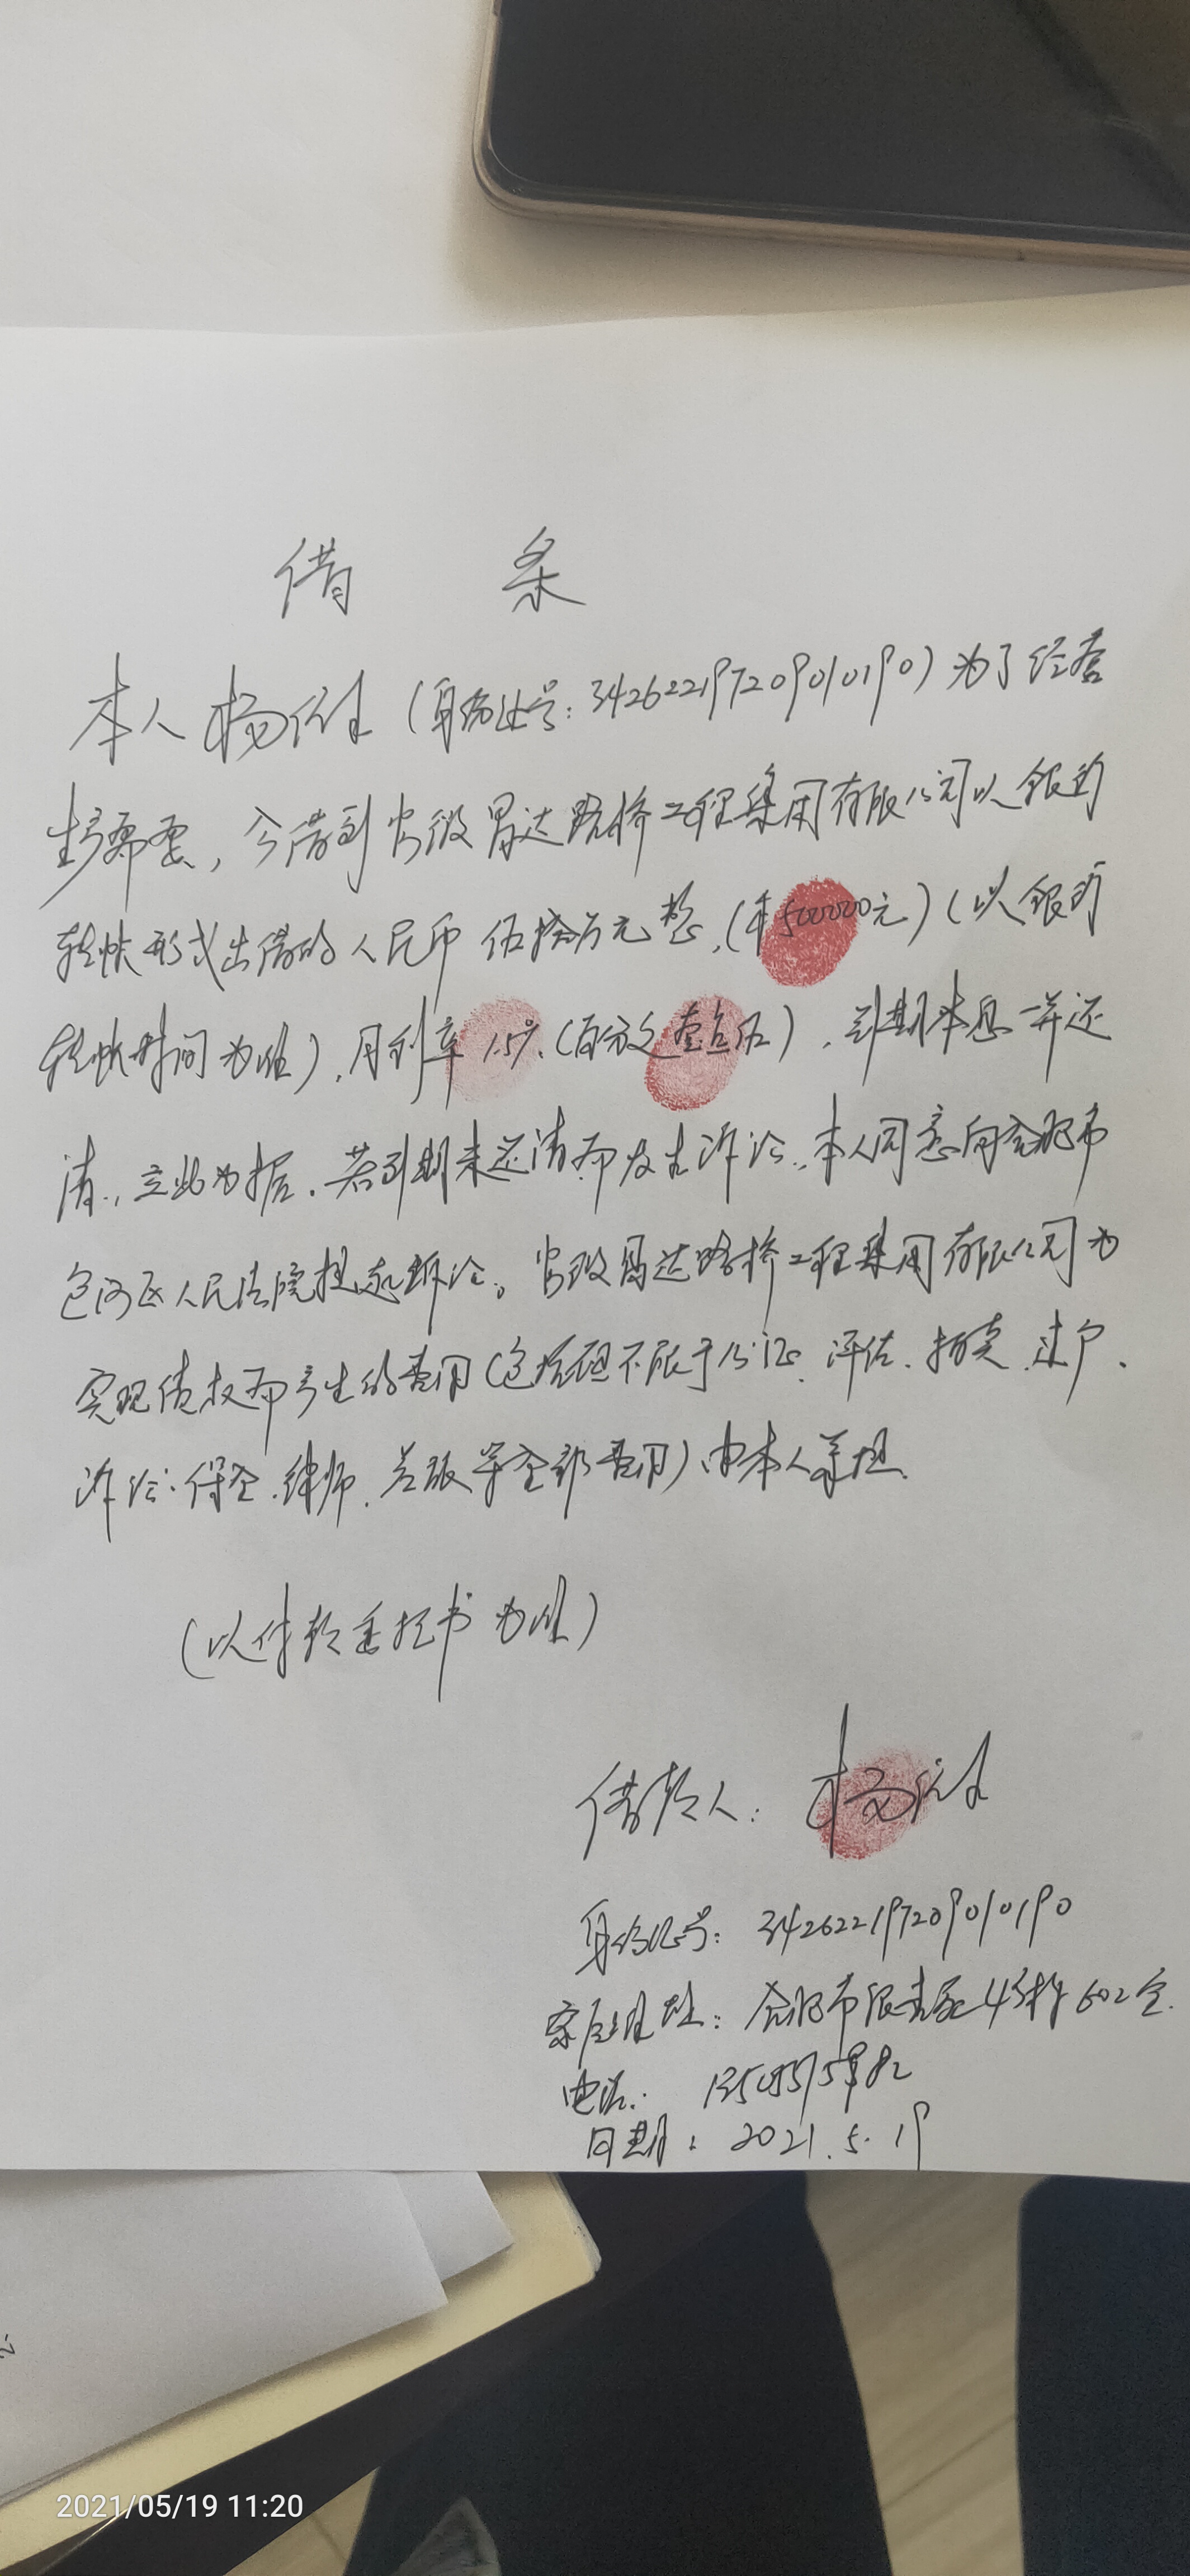 借 条
本人杨 (身份证号: 342622197209010190) 为了经营
生产需要, 今借到安徽昌达路桥工程集团有限公司以银行
转帐形式出借的人民币伍拾万元整, (¥500000元) (以银行
转帐时间为准), 月利率1.5%. (百分之壹点伍), 到期本息一并还
清., 立此为据. 若到期未还清而发生诉讼., 本人同意向合肥市
包河区人民法院提起诉讼。安徽昌达路桥工程集团有限公司为
实现债权而产生的费用 (包括但不限于公证. 评估. 拍卖. 过户.
诉讼. 保全. 律师. 差旅等全部费用) 由本人承担.
(以付款委托书为准)
借款人: 杨
身份证号: 342622197209010190
家庭地址: 合肥市 4 602室.
电话:
日期: 2021.5.19
2021/05/19 11:20